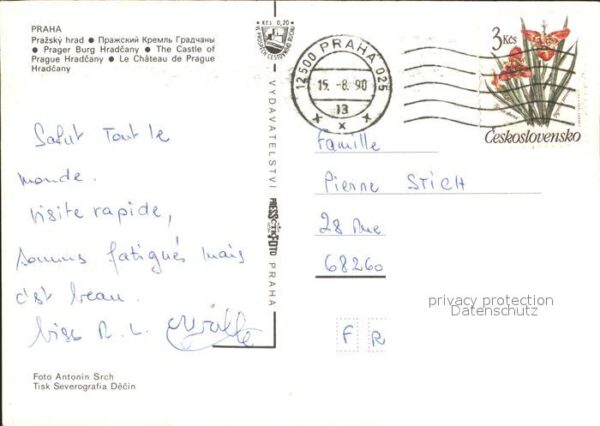 PRAHA
Pražský hrad ● Пражский Кремль Градчаны
● Prager Burg Hradčany ● The Castle of
Prague Hradčany ● Le Château de Prague
Hradčany
Kčs 0,20
125 00 PRAHA 025
15. -8. 90
13
x x x
3 Kčs
Československo
VYDAVATELSTVÍ PRESSFOTO PRAHA
Salut Tout le
monde.
Visite rapide,
sommes fatigués mais
c'est beau.
bise R. L.
Famille
Pierre STICH
28 Rue
68260
privacy protection
Datenschutz
F R
Foto Antonín Srch
Tisk Severografia Děčín